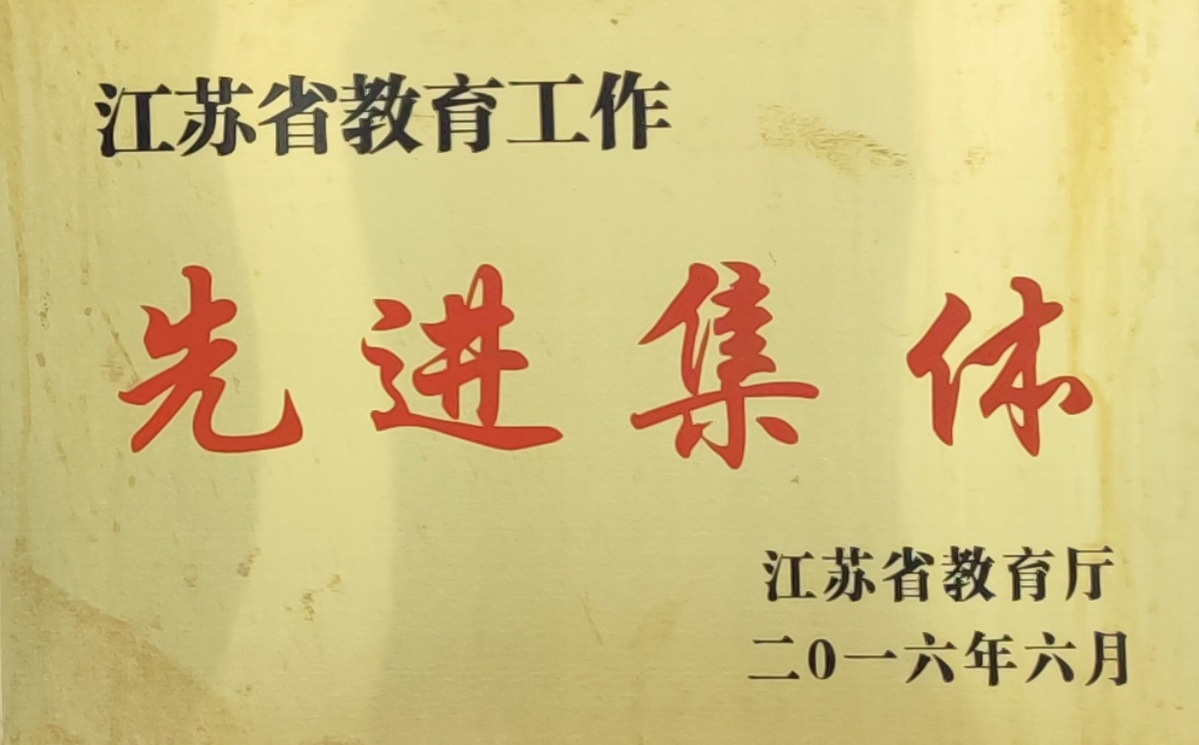 江苏省教育工作
先进集体
江苏省教育厅
二0一六年六月